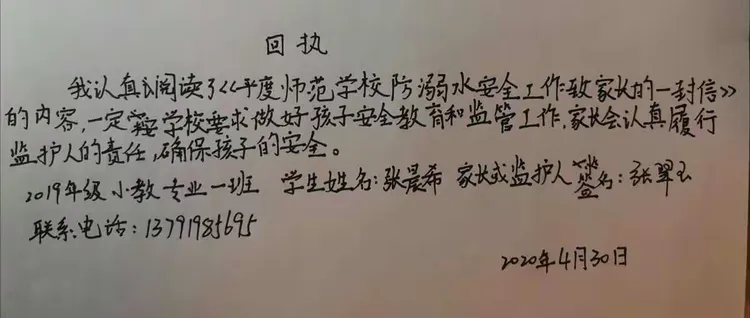 回执
我认真阅读了《平度师范学校防溺水安全工作致家长的一封信》
的内容,一定按学校要求做好孩子安全教育和监管工作,家长会认真履行
监护人的责任,确保孩子的安全。
2019年级小教专业一班 学生姓名:张晨希 家长或监护人签名:张翠玉
联系电话:13791985695
2020年4月30日